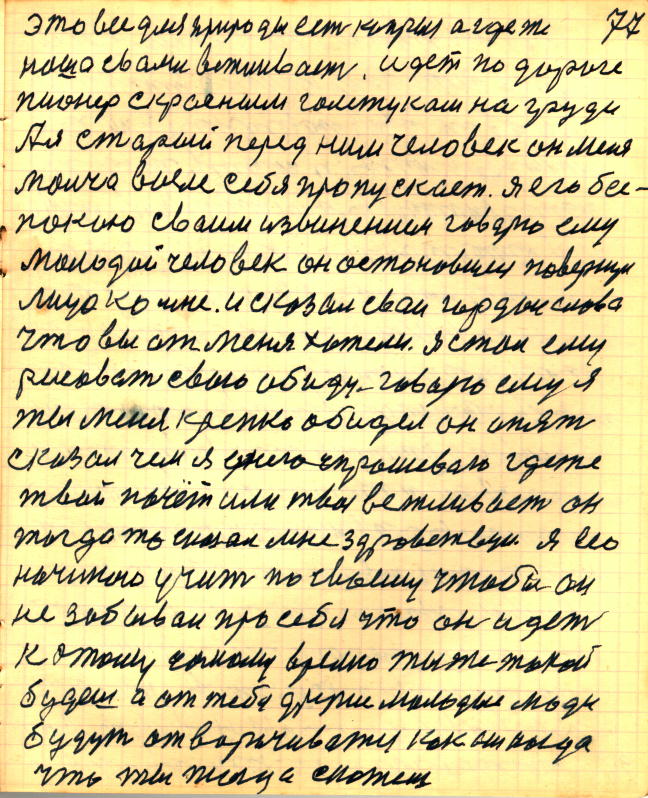 это все для природы есть каприз а где ж 77
наша с вами вежливаст, идет по дороге
пионер скрасным голстукам на груди
А я старый перед ним человек он меня
молча возле себя пропускает. я его бес-
покою сваим извинением говарю ему
молодой человек он остоновился повернул
лицо ко мне. и сказал сваи гордые слова
что вы от меня хотели. я стал ему
рисоват сваю обиду-говарю ему я
ты меня крепко обидел он опят
сказал чем я у него спрошеваю где же
твай почёт или твоя вежливаст он
тогда то сказал мне здравствуй я его
начинаю учит по своему чтобы он
не забывал про себя что он идет
к этому самому время ты же такой
будеш а от тебя другие молодые люди
будут отворачиватся как
что ты тогда скажеш